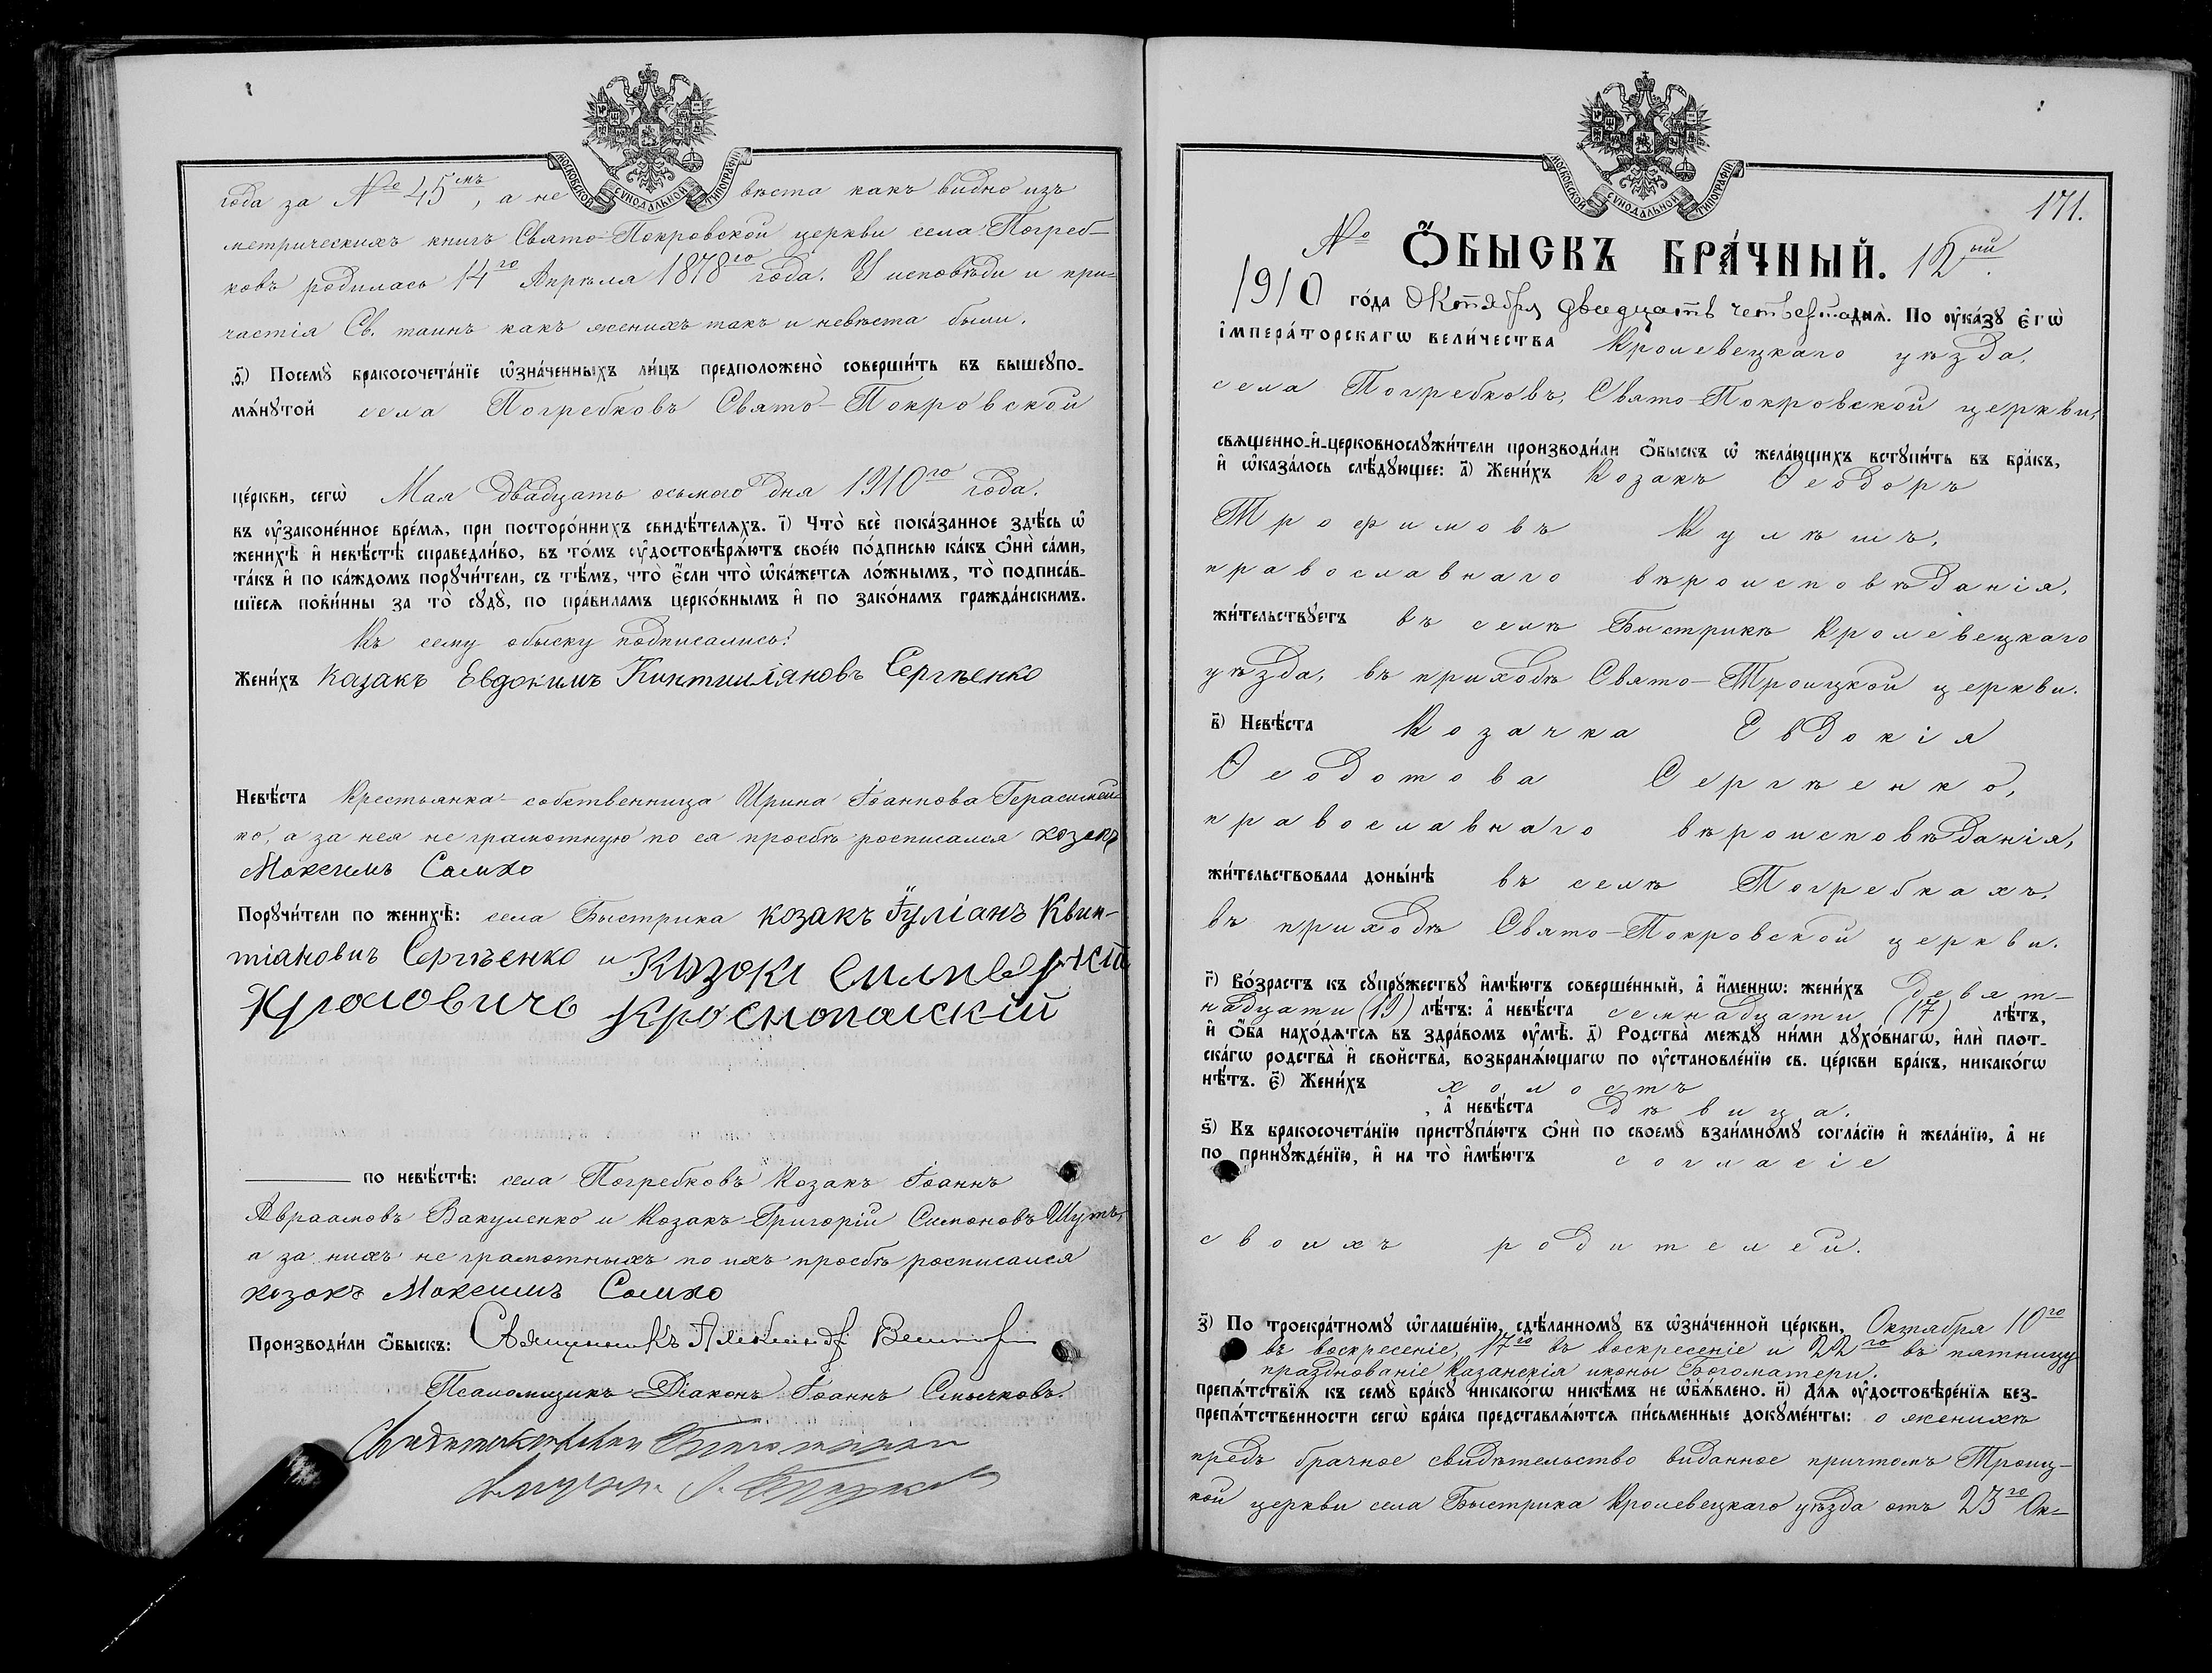 МОСКОВСКОЙ СѴНОДАЛЬНОЙ ТИПОГРАФІИ
года за № 45мъ, а невѣста какъ видно изъ
метрическихъ книгъ Свято-Покровской церкви села Погреб-
ковъ родилась 14го Апрѣля 1878го года. У исповѣди и при-
частія Св. таинъ какъ женихъ такъ и невѣста были.
ѳ҃) Посемꙋ̀ бракосочета́нїе ѡ҆зна́ченныхъ ли́цъ предположено̀ соверши́ть въ вышеꙋпо-
мѧ́нꙋтой села Погребковъ Свято-Покровской
це́ркви, сегѡ̀ Мая двадцать осьмого дня 1910го года.
въ ᲂу҆законе́нное вре́мѧ, при посторо́ннихъ свидѣ́телѧхъ. і҃) Что̀ всѐ пока́занное здѣ́сь ѡ҆
женихѣ̀ и҆ невѣ́стѣ справедли́во, въ то́мъ ᲂу҆достовѣрѧ́ютъ свое́ю по́дписью ка́къ ѻ҆нѝ са́ми,
та́къ и҆ по ка́ждомъ порꙋчи́тели, съ тѣ́мъ, что̀ є҆́сли что̀ ѡ҆ка́жетсѧ ло́жнымъ, то̀ подписа́в-
шїесѧ пови́нны за то̀ сꙋдꙋ̀, по пра́виламъ церко́внымъ и҆ по зако́намъ гражда́нскимъ.
Къ сему обыску подписались:
Жени́хъ Казакъ Евдокимъ Кинтилiяновъ Сергѣенко
Невѣ́ста Крестьянка-собственница Ирина Іоаннова Герасимен-
ко, а за нея не грамотную по ея просьбѣ росписался козакъ
Максимъ Сомко
Порꙋчи́тели по женихѣ̀: села Быстрика козакъ Іуліанъ Квин-
тіановичъ Сергѣенко и Козакъ
Краснопольскій
по невѣ́стѣ: села Погребковъ Козакъ Іоаннъ
Авраамовъ Вакуленко и Козакъ Григорій Симоновъ Шутъ,
а за нихъ не грамотныхъ по ихъ просьбѣ росписался
козакъ Максимъ Сомко
Производи́ли ѻ҆́быскъ: Священникъ
Псаломщикъ Діаконъ Іоаннъ Смычковъ.
МОСКОВСКОЙ СѴНОДАЛЬНОЙ ТИПОГРАФІИ
171.
№ Ѻ҆́БЫСКЪ БРА́ЧНЫЙ. 12ый.
1910 го́да Октября двадцать четвертаго днѧ̀. По ᲂу҆ка́зꙋ є҆гѡ̀
і҆мпера́торскагѡ вели́чества Кролевецкаго уѣзда,
села Погребковъ, Свято-Покровской церкви,
свѧщенно-и҆-церковнослꙋжи́тели производи́ли ѻ҆́быскъ ѡ҆ жела́ющихъ встꙋпи́ть въ бра́къ,
и҆ ѡ҆каза́лось слѣ́дꙋющее: а҃) Жени́хъ Козакъ Ѳеодоръ
Трофимовъ Кулѣшъ,
православнаго вѣроисповѣданія,
жи́тельствꙋетъ въ селѣ Быстрикѣ Кролевецкаго
уѣзда, въ приходѣ Свято-Троицкой церкви.
в҃) Невѣ́ста Козачка Евдокія
Ѳеодотова Сергѣенко,
православнаго вѣроисповѣданія,
жи́тельствовала доны́нѣ въ селѣ Погребкахъ,
въ приходѣ Свято-Покровской церкви.
г҃) Во́зрастъ къ сꙋпрꙋ́жествꙋ и҆мѣ́ютъ соверше́нный, а҆ и҆́меннѡ: жени́хъ девят-
надцати (19) лѣ́тъ: а҆ невѣ́ста семнадцати (17) лѣ́тъ,
и҆ ѻ҆́ба нахо́дѧтсѧ въ здра́вомъ ᲂу҆мѣ̀. д҃) Родства̀ междꙋ ни́ми дꙋхо́внагѡ, и҆лѝ плот-
ска́гѡ родства̀ и҆ сво́йства, возбранѧ́ющагѡ по ᲂу҆становле́нїю св. це́ркви бра́къ, никако́гѡ
нѣ́тъ. є҃) Жени́хъ холостъ
, а҆ невѣ́ста дѣвица.
ѕ҃) Къ бракосочета́нїю пристꙋпа́ютъ ѻ҆нѝ по своемꙋ̀ взаи́мномꙋ согла́сїю и҆ жела́нїю, а҆ не
по принꙋжде́нїю, и҆ на то̀ и҆мѣ́ютъ согласіе
своихъ родителей.
з҃) По троекра́тномꙋ ѡ҆глаше́нїю, сдѣ́ланномꙋ въ ѡ҆зна́ченной це́ркви, Октября 10го
въ воскресеніе, 17го въ воскресеніе и 22го въ пятницу
празднованіе Казанскія иконы Богоматери.
препѧ́тствїѧ къ семꙋ̀ бра́кꙋ никако́гѡ никѣ́мъ не ѡ҆б̾ѧ́влено. и҃) Длѧ̀ ᲂу҆достовѣре́нїѧ без-
препѧ́тственности сегѡ̀ бра́ка представлѧ́ютсѧ пи́сьменные докꙋме́нты: о женихѣ
предъ брачное свидѣтельство виданное причтомъ Троиц-
кой церкви села Быстрика Кролевецкаго уѣзда отъ 23го Ок-